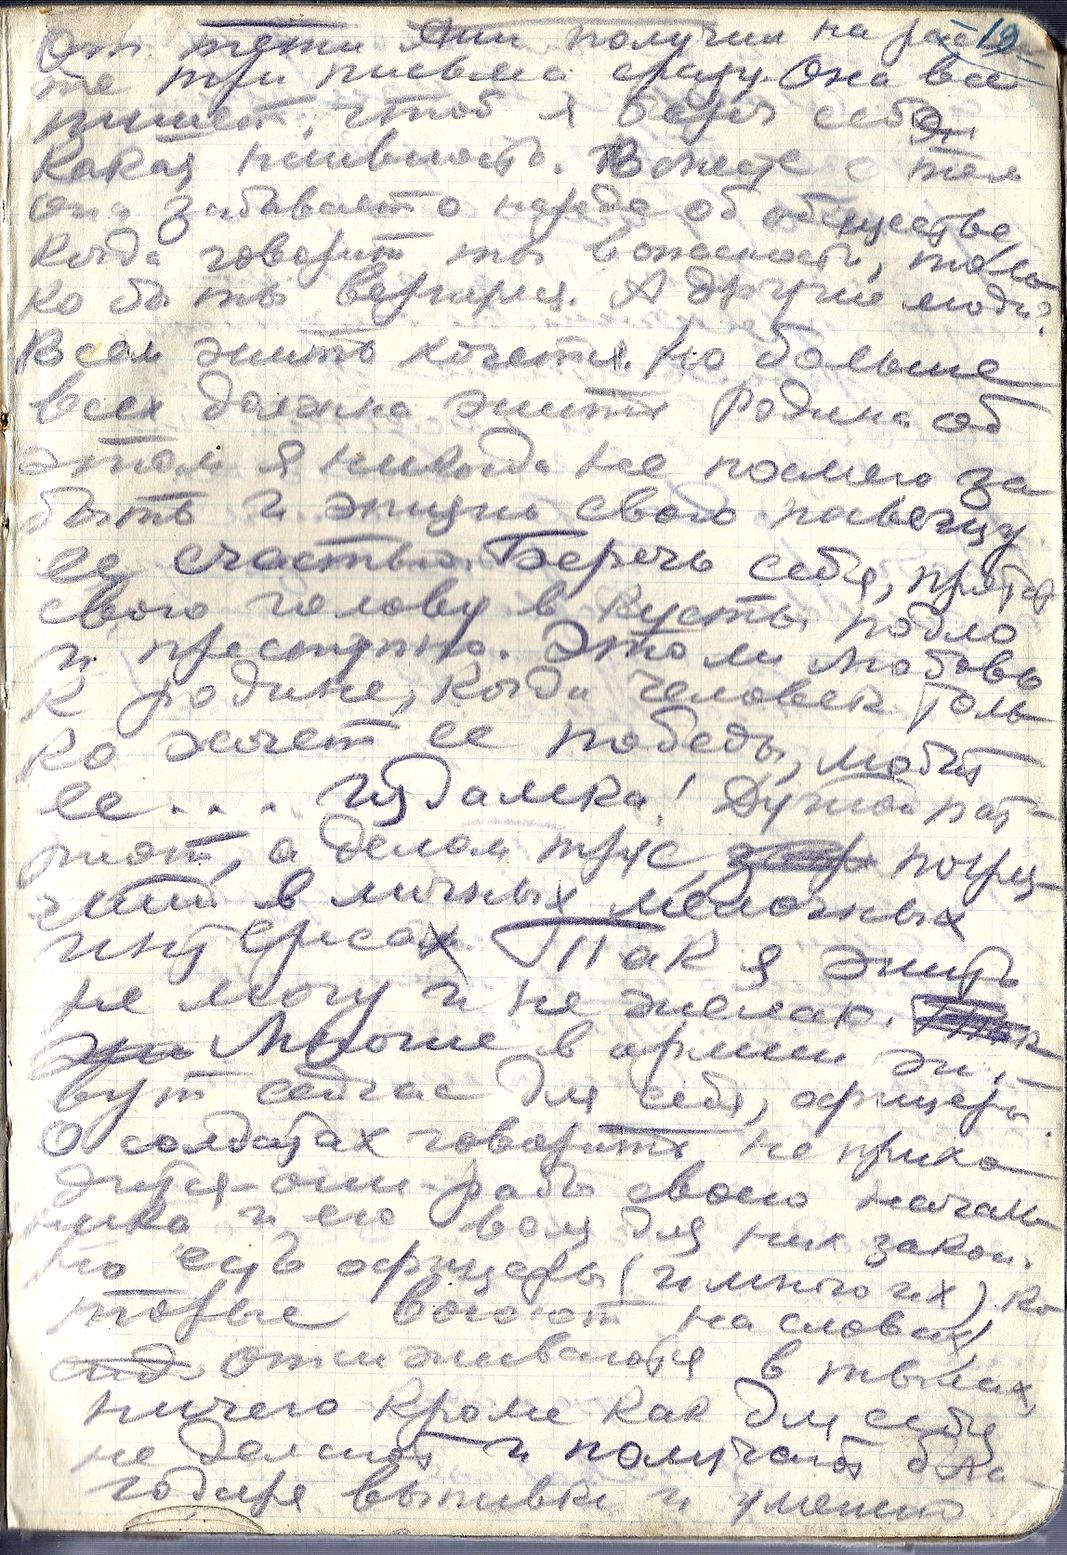 19
От тети Ани получил на рас
те три письма сразу. Она все
пишет, чтоб я берег себя
Какая наивность. Вместе с тем
она забывает о народе об обществе,
когда говорит ты в опасности, толь
ко бы ты вернулся. А другие люди?
Всем жить хочется. Но больше
всех должна жить Родина об
этом я никогда не посмею за
быть и жизнь свою повешу
ее счастью. Беречь себя, прятать
свою голову в кусты подло
и преступно. Это ли любовь
к родине, когда человек толь
ко хочет ее победы, любит
ее . . . издалека! Душой пат-
риот, а делом трус, погря-
зший в личных мелочных
интересах Так я жить
не могу и не желаю.
Многие в армии жи-
вут сейчас для себя, офицеры.
О солдатах говорить не прихо
дится - они рабы своего началь
ника и его воля для них закон.
Но есть офицеры (и много их) ко
торые воюют на словах,
отсиживаются в тылах,
ничего кроме как для себя
не делают и получают бла
годаря выпивки и умению